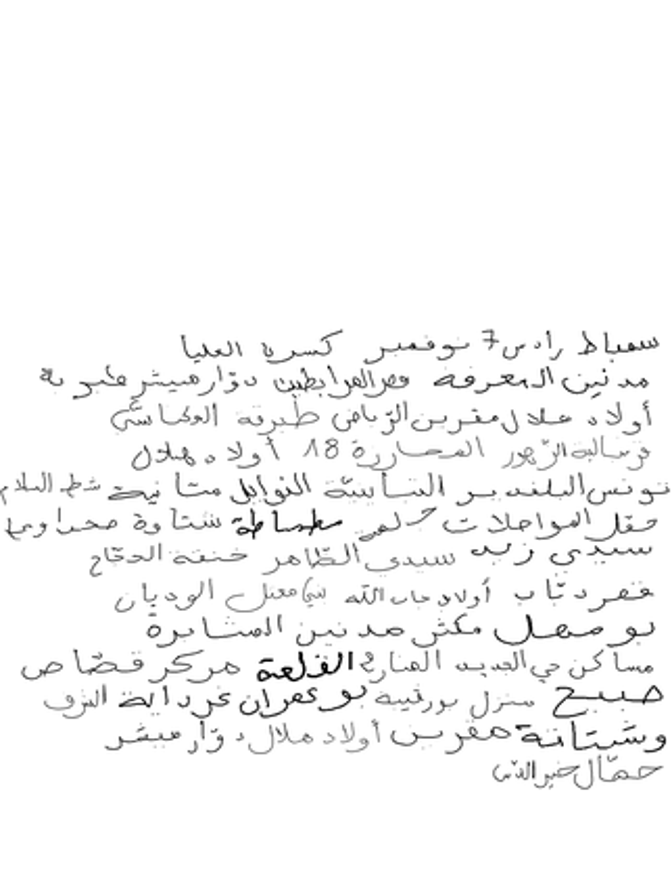 سمباط رادس 7 نوفمبر كسرى العليا
مدنين المعرفة قصر المرابطين دوّار ميشر طبربة
أولاد هلال مقرين الرّياض طبرقة العكّاشي
قرسالية الزّهور المحارزة 18 أولاد هلال
تونس البلفدير النسايبيّة النوايل متانية شط السلام
حقل المواصلات سطساطة شتاوة صحراوي
سيدي زيد سيدي الظّاهر خنقة الحجّاج
قصر دبّاب أولاد جاب الله الوديان
بو سهل مكثر مدنين المشابرة
مساكن حي الجديد المنارة 2 القلعة مركز قصّاص
صبيح منزل بورقيبة بو عمران غرداية
وشتانة مقرين أولاد هلال دوّار ميشر
حمّال خير الدّين